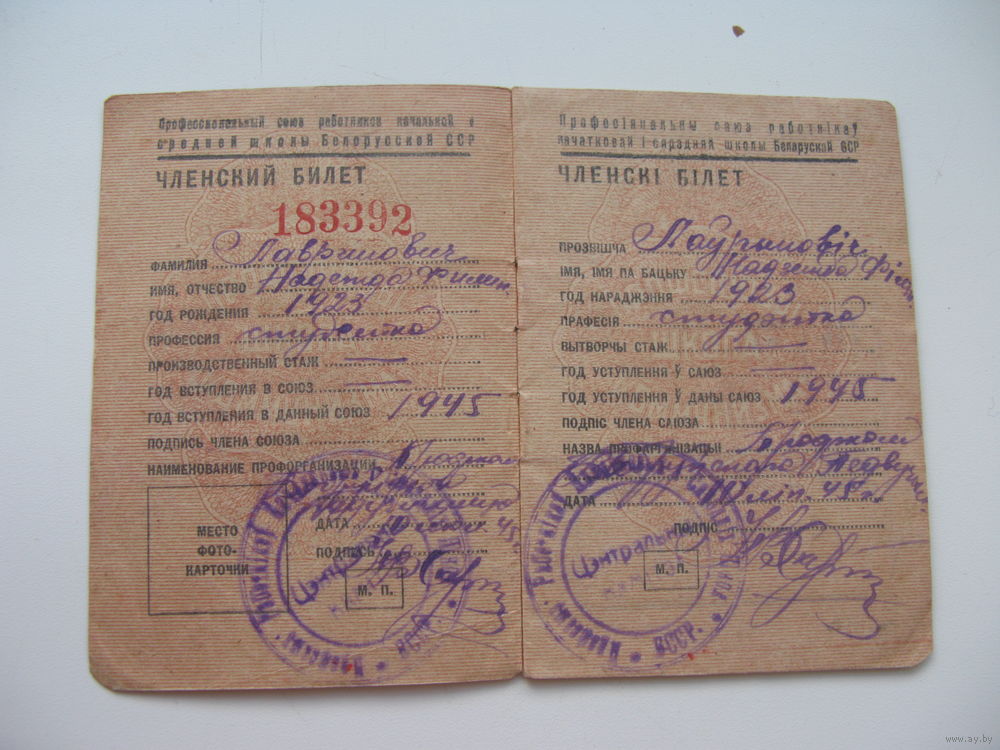 Профессиональный союз работников начальной и
средней школы Белорусской ССР
ЧЛЕНСКИЙ БИЛЕТ
183392
ФАМИЛИЯ Лавринович
ИМЯ, ОТЧЕСТВО Надежда
ГОД РОЖДЕНИЯ 1923
ПРОФЕССИЯ студентка
ПРОИЗВОДСТВЕННЫЙ СТАЖ —
ГОД ВСТУПЛЕНИЯ В СОЮЗ —
ГОД ВСТУПЛЕНИЯ В ДАННЫЙ СОЮЗ 1945
ПОДПИСЬ ЧЛЕНА СОЮЗА
НАИМЕНОВАНИЕ ПРОФОРГАНИЗАЦИИ
МЕСТО
ФОТО-
КАРТОЧКИ
ДАТА
ПОДПИСЬ
М. П.
Прафесіянальны саюз работнікаў
пачатковай і сярэдняй школы Беларускай ССР
ЧЛЕНСКІ БІЛЕТ
ПРОЗВІШЧА Лаўрыновіч
ІМЯ, ІМЯ ПА БАЦЬКУ
ГОД НАРАДЖЭННЯ 1923
ПРАФЕСІЯ студэнтка
ВЫТВОРЧЫ СТАЖ —
ГОД УСТУПЛЕННЯ Ў САЮЗ —
ГОД УСТУПЛЕННЯ Ў ДАНЫ САЮЗ 1945
ПОДПІС ЧЛЕНА САЮЗА
НАЗВА ПРАФАРГАНІЗАЦЫІ
ДАТА
ПОДПІС
М. П.
БССР
www.ay.by